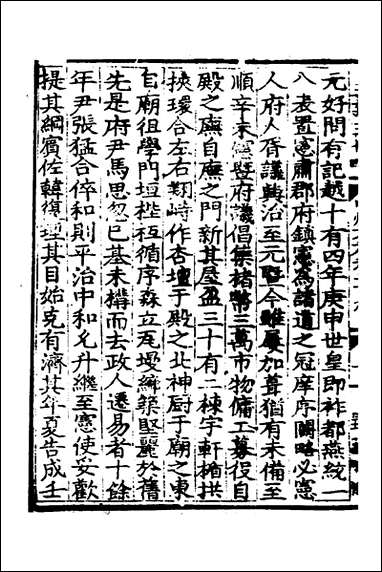 元好問有記越十有四年庚申世皇即祚都燕統一
八表置憲肅郡府鎮憲為諸道之冠庠序闕略必憲
人府人胥議興治至元暨今雖屢加葺猶有未備至
順辛未憲暨府議倡集楮幣三萬市物傭工募役自
殿之廡自廡之門新其屋盈三十有二棟宇軒楯拱
挾環合左右對峙作杏壇于殿之北神厨于廟之東
自廟徂學門垣陛栢循序森立瓦墁締築堅麗於舊
先是府尹馬思忽已基未構而去政人遷易者十餘
年尹張猛合倅和則平治中和允升繼至憲使妥歡
提其綱賓佐韓復理其目始克有濟其年夏告成壬